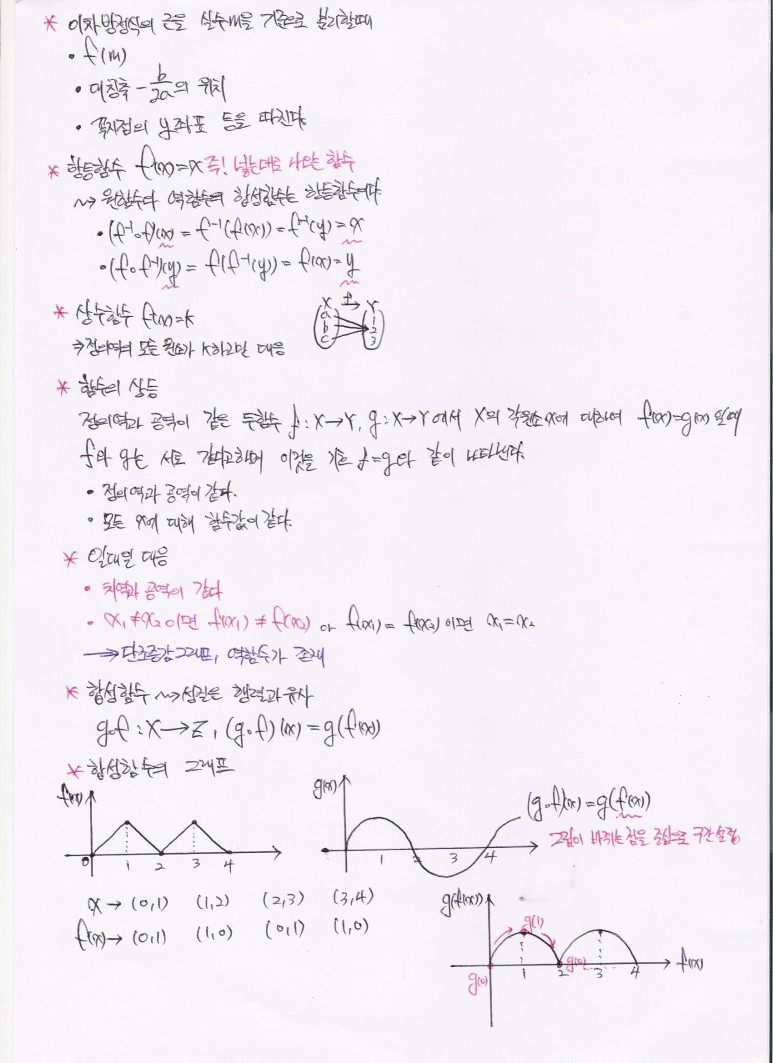 * 이차방정식의 근을 실수m을 기준으로 분리할때
• f(m)
• 대칭축 -b/2a의 위치
• 꼭지점의 y좌표 등을 따진다.
* 항등함수 f(x)=x 즉! 넣는대로 나오는 함수
⇝ 원함수와 역함수의 합성함수는 항등함수이다.
• (f⁻¹∘f)(x) = f⁻¹(f(x)) = f⁻¹(y) = x
• (f∘f⁻¹)(y) = f(f⁻¹(y)) = f(x) = y
* 상수함수 f(x)=k
X f→ Y
a 1
b 2
c 3
⇒ 정의역의 모든 원소가 k하고만 대응
* 함수의 상등
정의역과 공역이 같은 두함수 f : X→Y, g : X→Y에서 X의 각원소x에 대하여 f(x)=g(x) 일때
f와 g는 서로 같다고하며 이것을 기호 f=g와 같이 나타낸다.
• 정의역과 공역이 같다.
• 모든 x에 대해 함수값이 같다.
* 일대일 대응
• 치역과 공역이 같다
• x₁≠x₂이면 f(x₁) ≠ f(x₂) or f(x₁) = f(x₂)이면 x₁=x₂
→ 단조증감그래프, 역함수가 존재
* 합성함수 ⇝ 성질은 행렬과 유사
g∘f : X→Z, (g∘f)(x) = g(f(x))
* 합성함수의 그래프
f(x)
0 1 2 3 4
g(x)
1 2 3 4
(g∘f)(x) = g(f(x))
그림이 바뀌는 점을 중심으로 구간설정
x → (0,1) (1,2) (2,3) (3,4)
f(x) → (0,1) (1,0) (0,1) (1,0)
g(f(x))
g(1)
g(0)
g(0)
1 2 3 4
f(x)